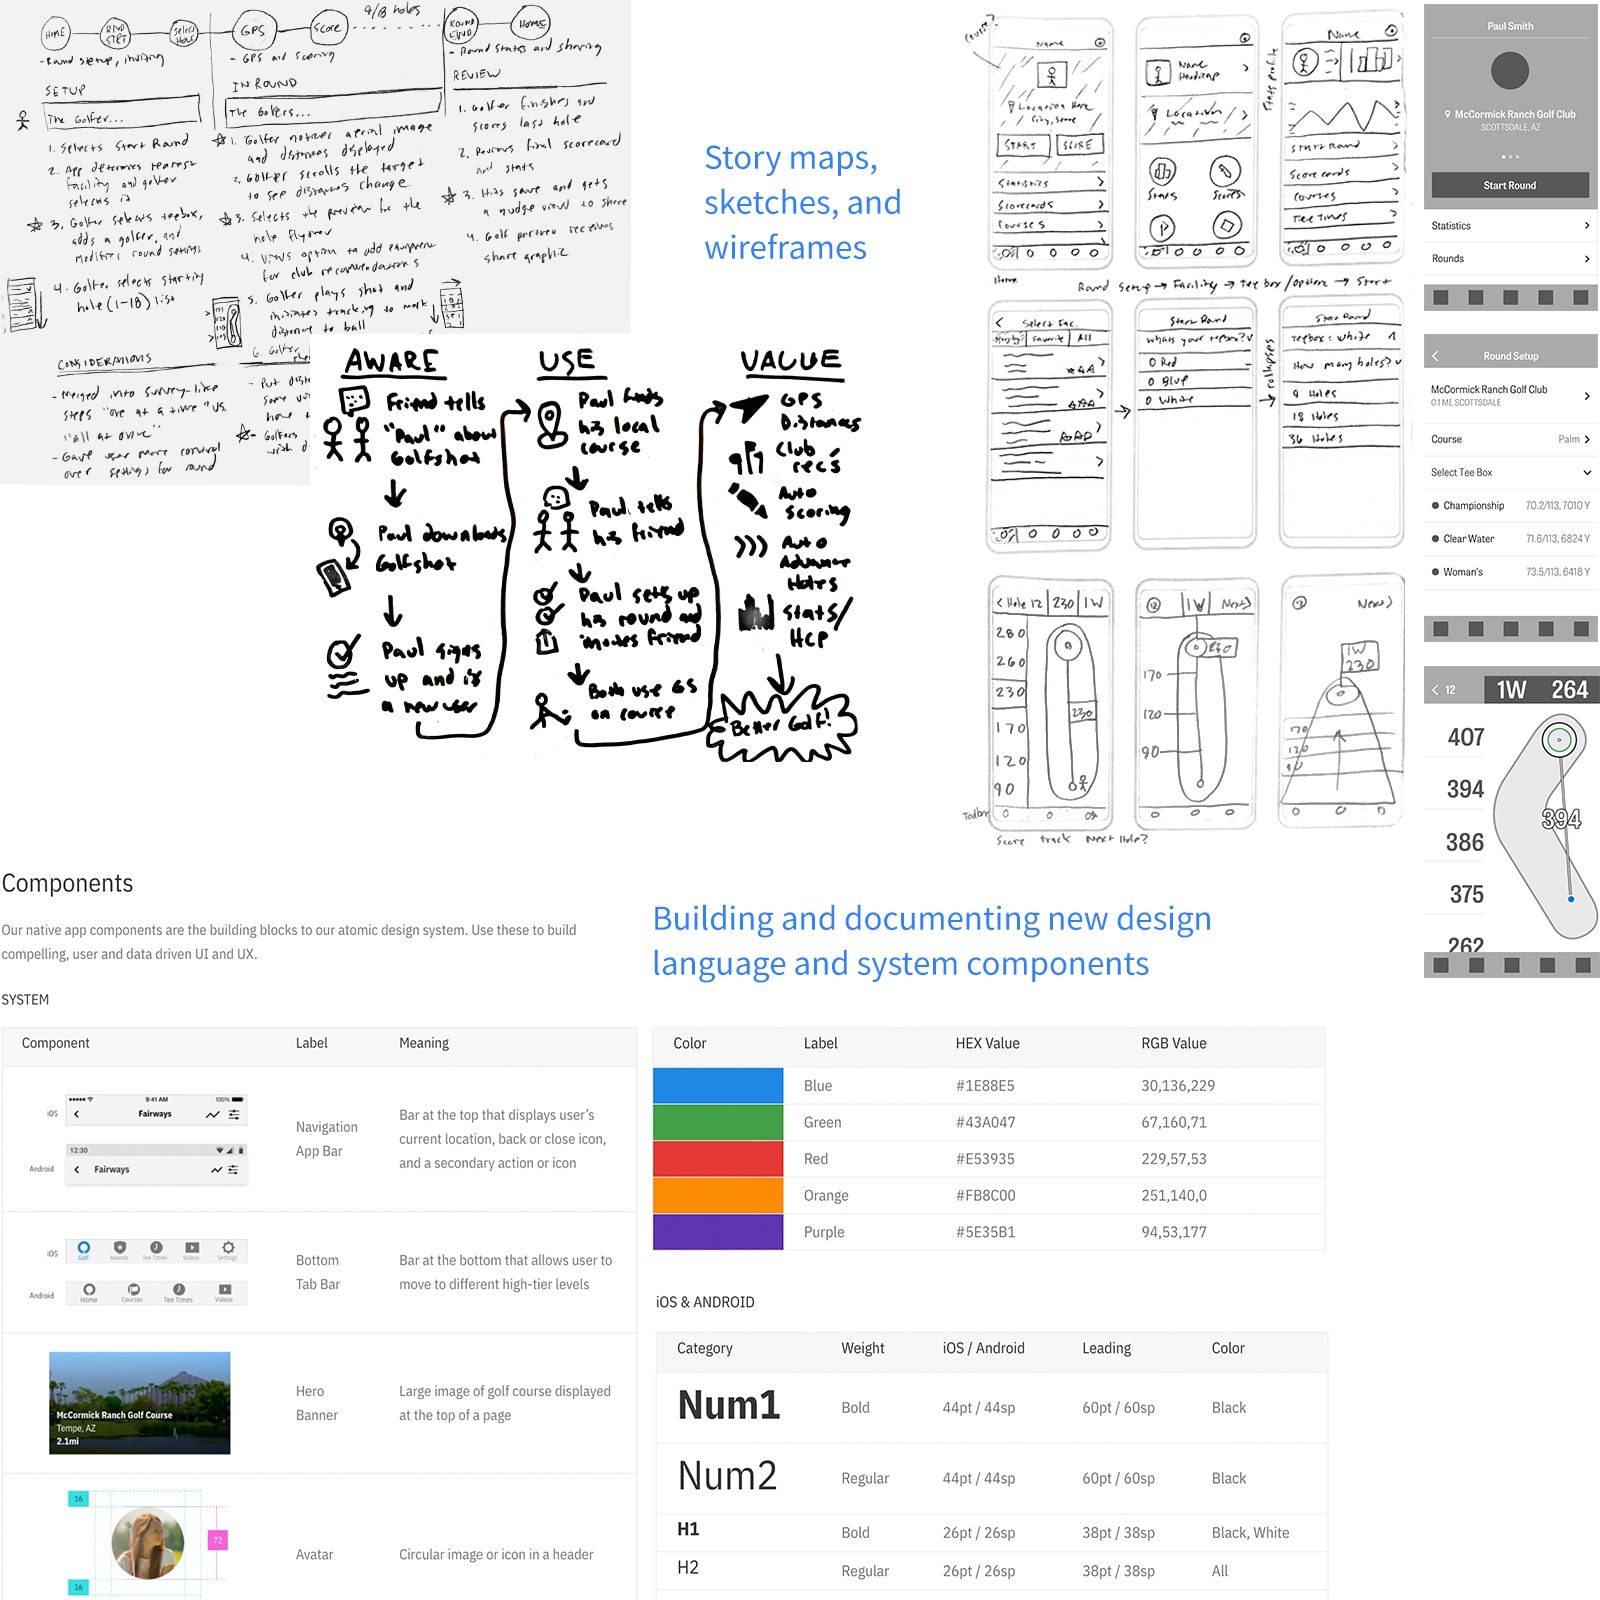 HOME
RND STRT
Select HOLE
GPS
Score
9/18 holes
ROUND END
HOME
- Round setup, inviting
- GPS and scoring
- Round states and sharing
SETUP
IN ROUND
REVIEW
The Golfer...
The Golfers...
1. Selects Start Round
2. App determines nearest
facility and golfer
selects it
3. Golfer selects teebox,
adds a golfer, and
modifies round settings
4. Golfer selects starting
hole (1-18) list
1. Golfer notices aerial image
and distances displayed
2. Golfer scrolls the target
to see distances change
3. Selects the preview for the
hole flyover
4. Views option to add equipment
for club recommendations
5. Golfer plays shot and
initiates tracking to mark
distance to ball
6. Golfer
1. Golfer finishes and
scores last hole
2. Reviews final scorecard
and stats
3. Hits save and gets
a nudge view to share
4. Golf partner receives
share graphic
CONSIDERATIONS
- Merged into survey-like
steps "one at a time" vs.
"all at once"
- Gave user more control
over settings for round
- Put dist
some
have
- Golfers
with d
Story maps,
sketches, and
wireframes
AWARE
Friend tells
"Paul" about
Golfshot
Paul downloads
Golfshot
Paul signs
up and is
a new user
USE
Paul finds
his local
course
Paul tells
his friend
Paul sets up
his round and
invites friend
Both use GS
on course
VALUE
GPS
Distances
Club
rec's
Auto
Scoring
Auto
Advance
Holes
Stats/
HCP
Better Golf!
Course?
Name
Location Here
City, State
START
SCORE
Statistics
Scorecards
Courses
Home
Name
Handicap
Location
Stats
Scores
Stats profile
Name
Start Round
Scorecards
Courses
Tee Times
Round Setup → Facility → Tee box/options → Start
Select Fac.
Nearby
Favorite
All
Start Round
Whats your teebox?
Red
Blue
White
collapses
Start Round
Teebox: White
How many holes?
9 Holes
18 Holes
36 Holes
< Hole 12
230
1W
280
260
230
170
120
90
230
Toolbar
Score track Next Hole?
12
1W
Next>
230
170
120
90
12
Next>
1W
230
170
120
90
Paul Smith
McCormick Ranch Golf Club
SCOTTSDALE, AZ
Start Round
Statistics
Rounds
Round Setup
McCormick Ranch Golf Club
0.1 MI, SCOTTSDALE
Course Palm
Select Tee Box
Championship 70.2/113, 7010 Y
Clear Water 71.6/113, 6824 Y
Woman's 73.5/113, 6418 Y
12 1W 264
407
394
386
375
262
394
Components
Our native app components are the building blocks to our atomic design system. Use these to build
compelling, user and data driven UI and UX.
SYSTEM
Component Label Meaning
iOS
9:41 AM
100%
Fairways
Android
12:30
Fairways
Navigation
App Bar
Bar at the top that displays user's
current location, back or close icon,
and a secondary action or icon
iOS
Golf Awards Tee Times Videos Settings
Android
Home Courses Tee Times Videos
Bottom
Tab Bar
Bar at the bottom that allows user to
move to different high-tier levels
McCormick Ranch Golf Course
Tempe, AZ
2.1mi
Hero
Banner
Large image of golf course displayed
at the top of a page
16
72
16
Avatar
Circular image or icon in a header
Building and documenting new design
language and system components
Color Label HEX Value RGB Value
Blue #1E88E5 30,136,229
Green #43A047 67,160,71
Red #E53935 229,57,53
Orange #FB8C00 251,140,0
Purple #5E35B1 94,53,177
iOS & ANDROID
Category Weight iOS / Android Leading Color
Num1 Bold 44pt / 44sp 60pt / 60sp Black
Num2 Regular 44pt / 44sp 60pt / 60sp Black
H1 Bold 26pt / 26sp 38pt / 38sp Black, White
H2 Regular 26pt / 26sp 38pt / 38sp All